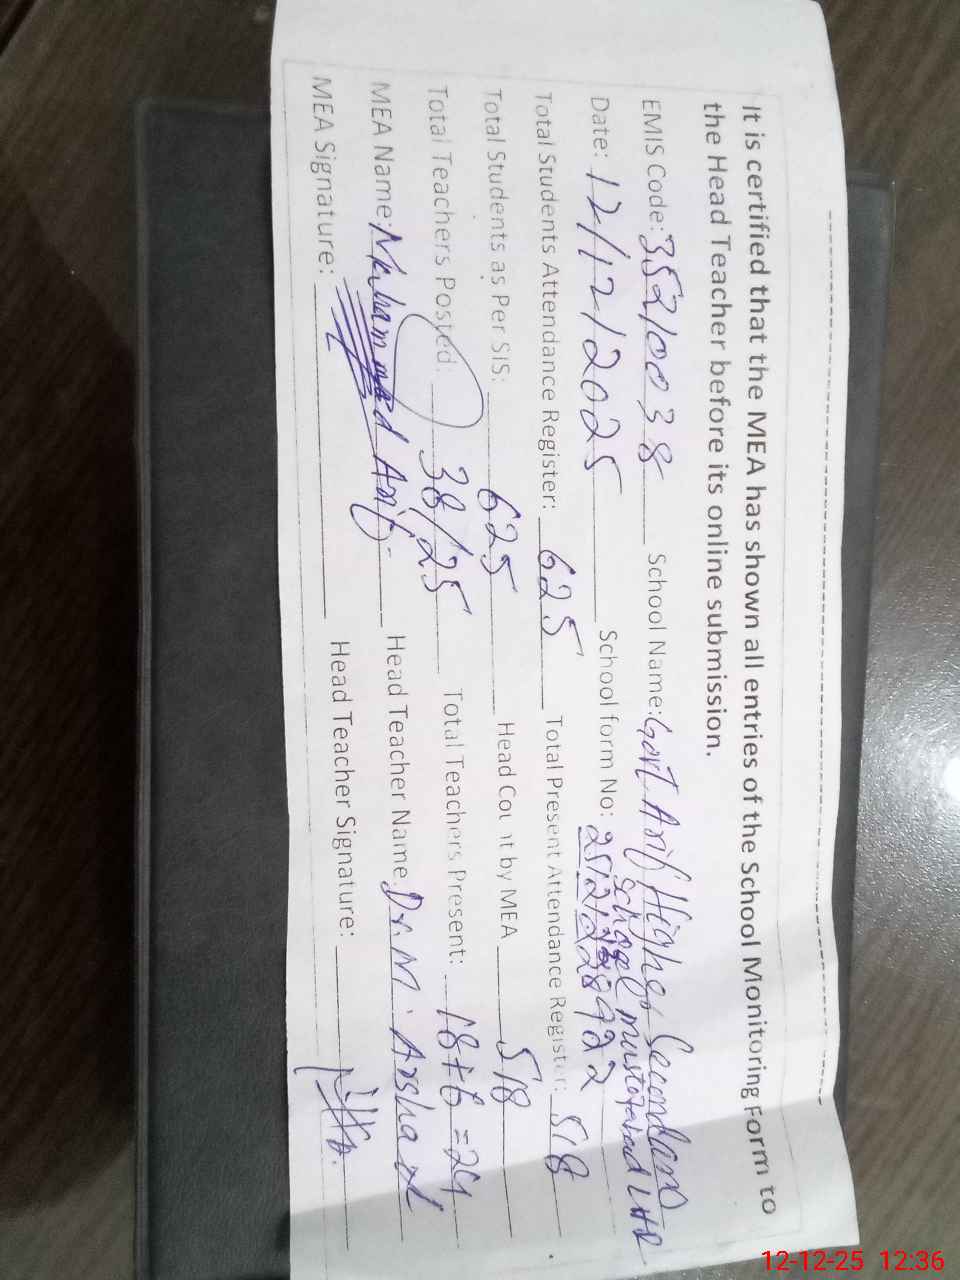 It is certified that the MEA has shown all entries of the School Monitoring Form to
the Head Teacher before its online submission.
EMIS Code: 35210038 School Name: Govt Arif Higher Secondary
School Mustafabad LHR
Date: 12/12/2025 School form No:
Total Students Attendance Register: 625 Total Present Attendance Register: 518
Total Students as Per SIS: 625 Head Count by MEA 518
Total Teachers Posted: 38/25 Total Teachers Present: 18+6=24
MEA Name: Muhammad Arif Head Teacher Name: Dr. M. Arshad
MEA Signature: Head Teacher Signature:
12-12-25 12:36